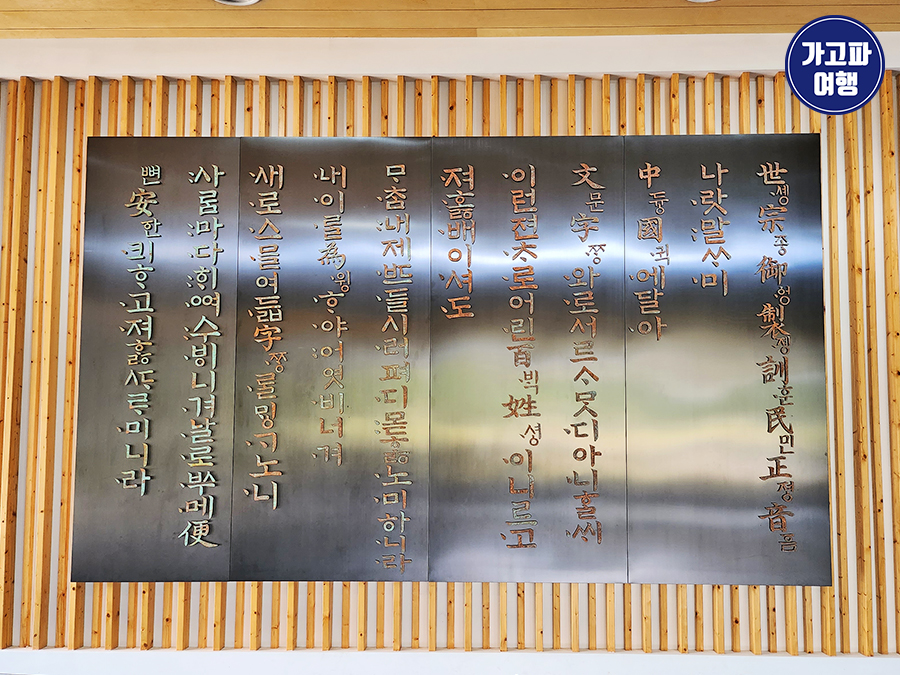 가고파
여행
世솅宗종御엉製졩訓훈民민正졍音음
나랏말ᄊᆞ미
中듕國귁에달아
文문字ᄍᆞᆼ와로서르ᄉᆞᄆᆞᆺ디아니ᄒᆞᆯᄊᆡ
이런젼ᄎᆞ로어린百ᄇᆡᆨ姓셩이니르고
져ᄒᆞᇙ배이셔도
ᄆᆞᄎᆞᆷ내제ᄠᅳ들시러펴디몯ᄒᆞᇙ노미하니라
내이ᄅᆞᆯ為윙ᄒᆞ야어엿비너겨
새로스믈여듧字ᄍᆞᆼᄅᆞᆯᄆᆡᇰᄀᆞ노니
사ᄅᆞᆷ마다ᄒᆡᅇᅧ수ᄫᅵ니겨날로ᄡᅮ메便
뼌安한킈ᄒᆞ고져ᄒᆞᇙᄯᆞᄅᆞ미니라